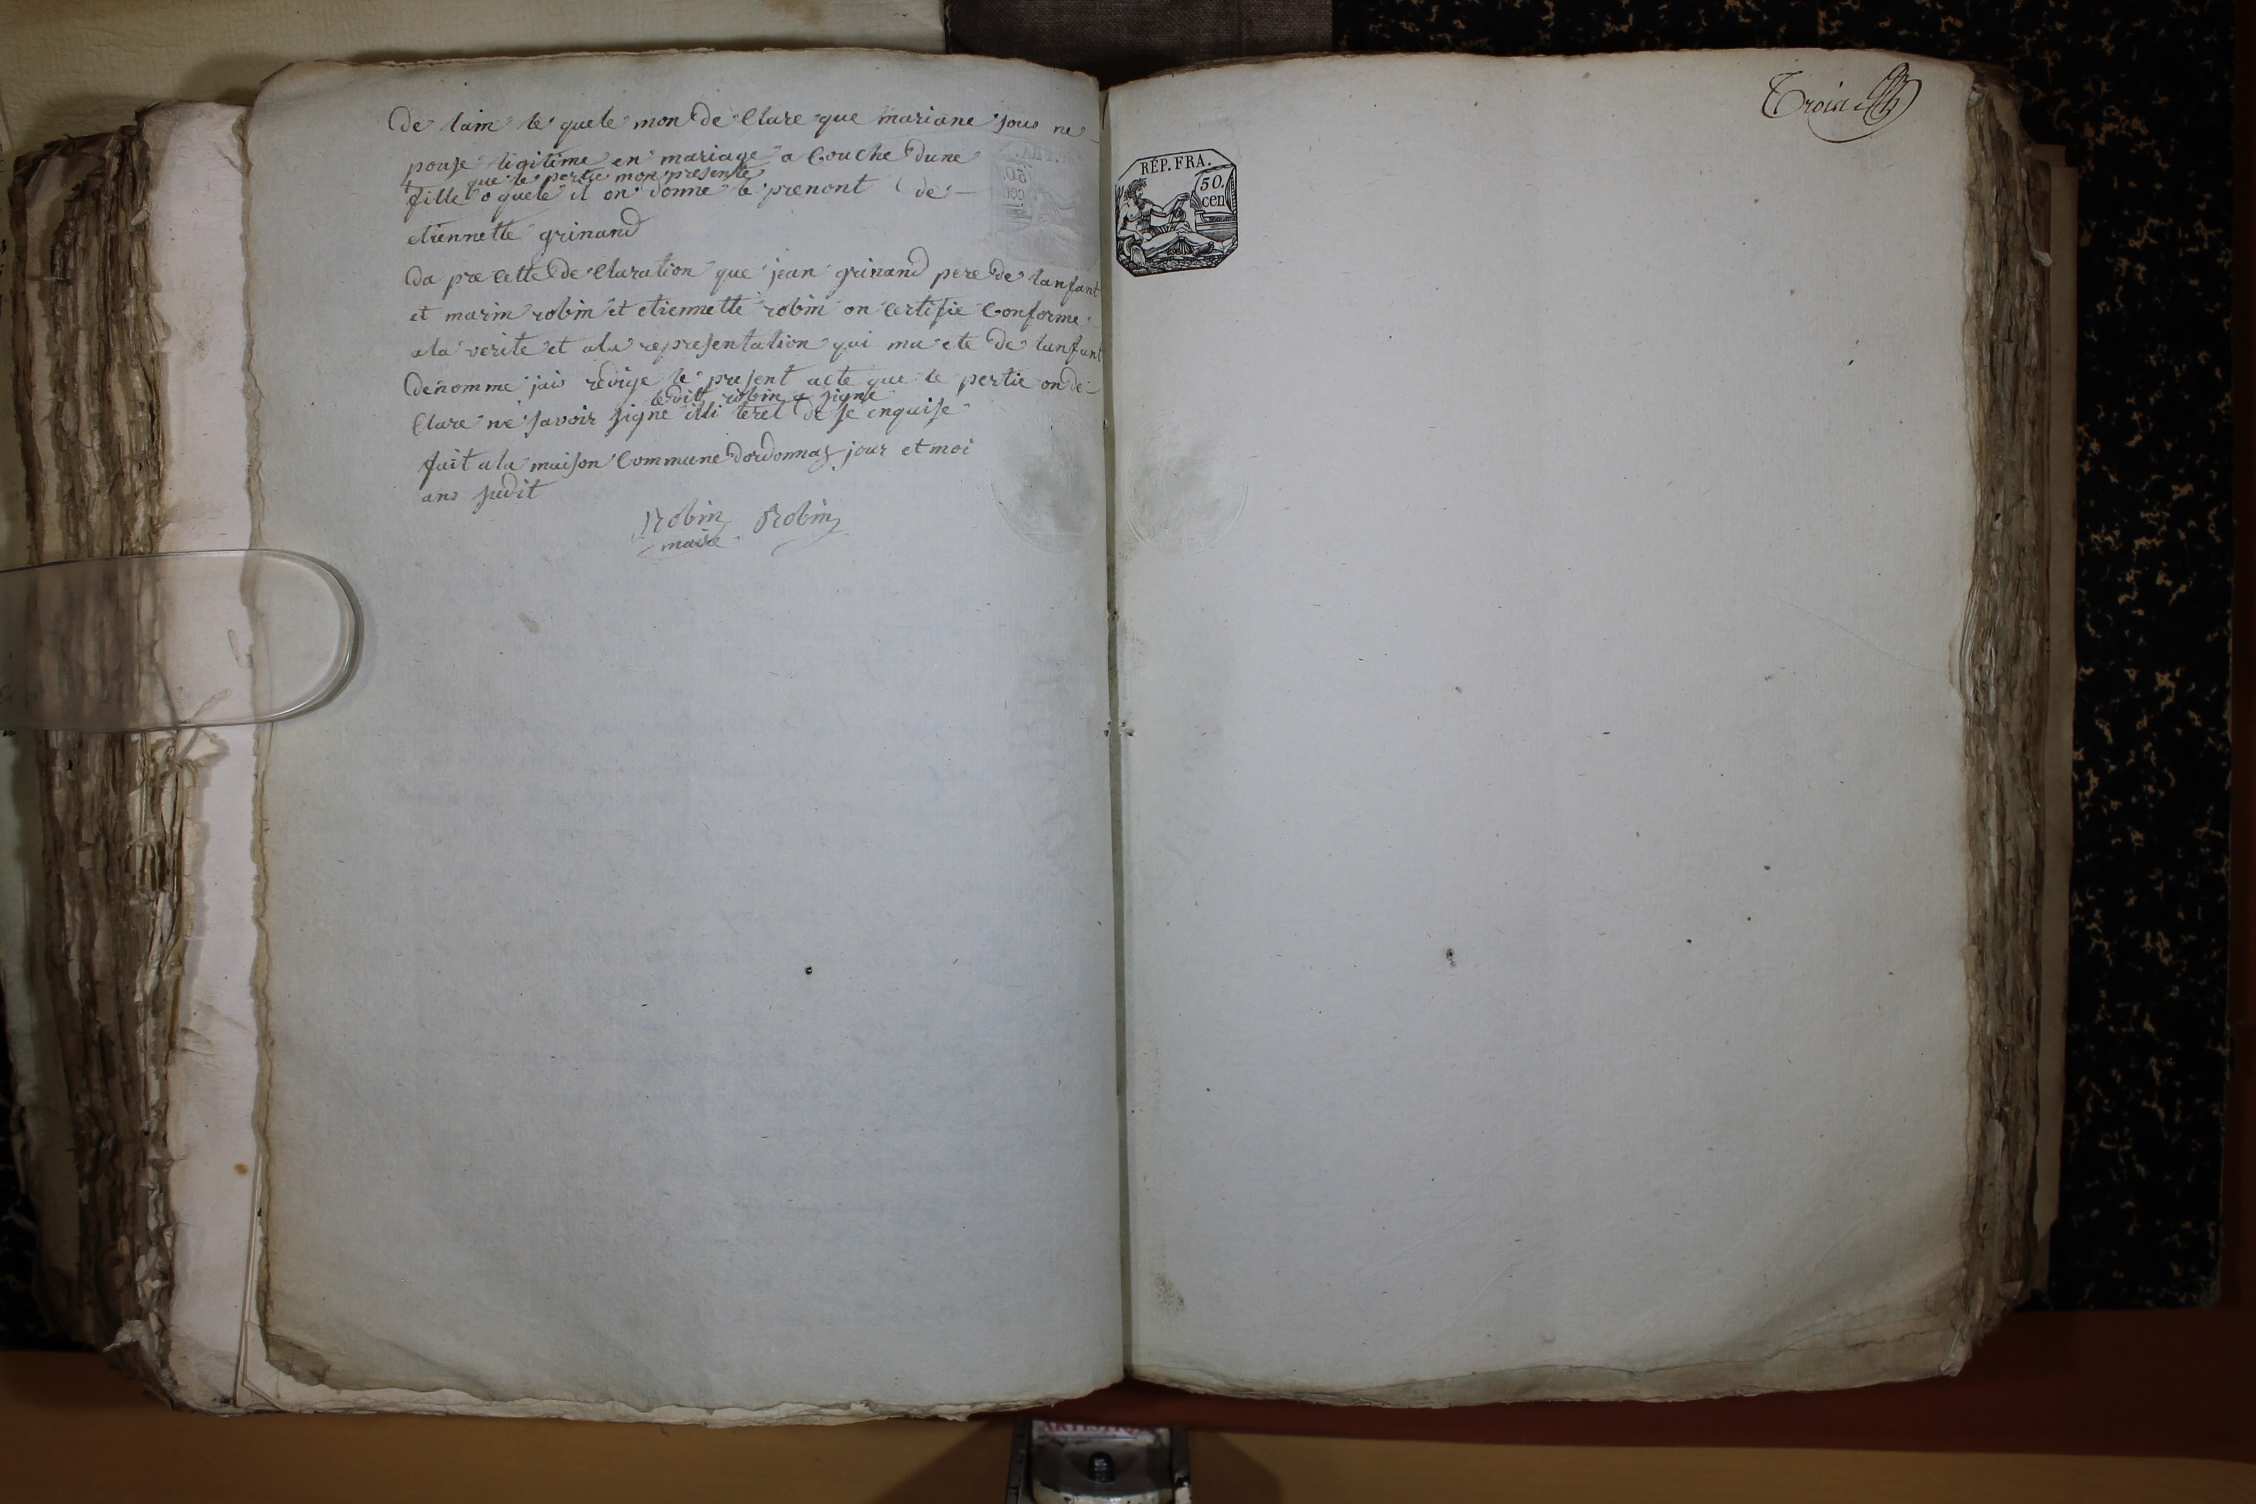 de lain le quele mon de Clare que mariane jous ne
pouse ligitime en mariage a Couche dune
que le pertie mon presente
fille o quele il on donne le prenont de
etiennette grinand
da pre cette de Claration que jean grinand pere de lanfant
et marin robin et etiennette robin on certifie Conforme
a la verite et a la representation qui ma ete de lanfant
denomme jais redige le present acte que le pertie on de
le dit robin a signe
Clare ne savoir signe illi teret de se enquise
fait a la maison Commune dordonnas jour et moi
ans sudit
Robin Robin
maire
RÉP. FRA.
50.
cen
Troisi